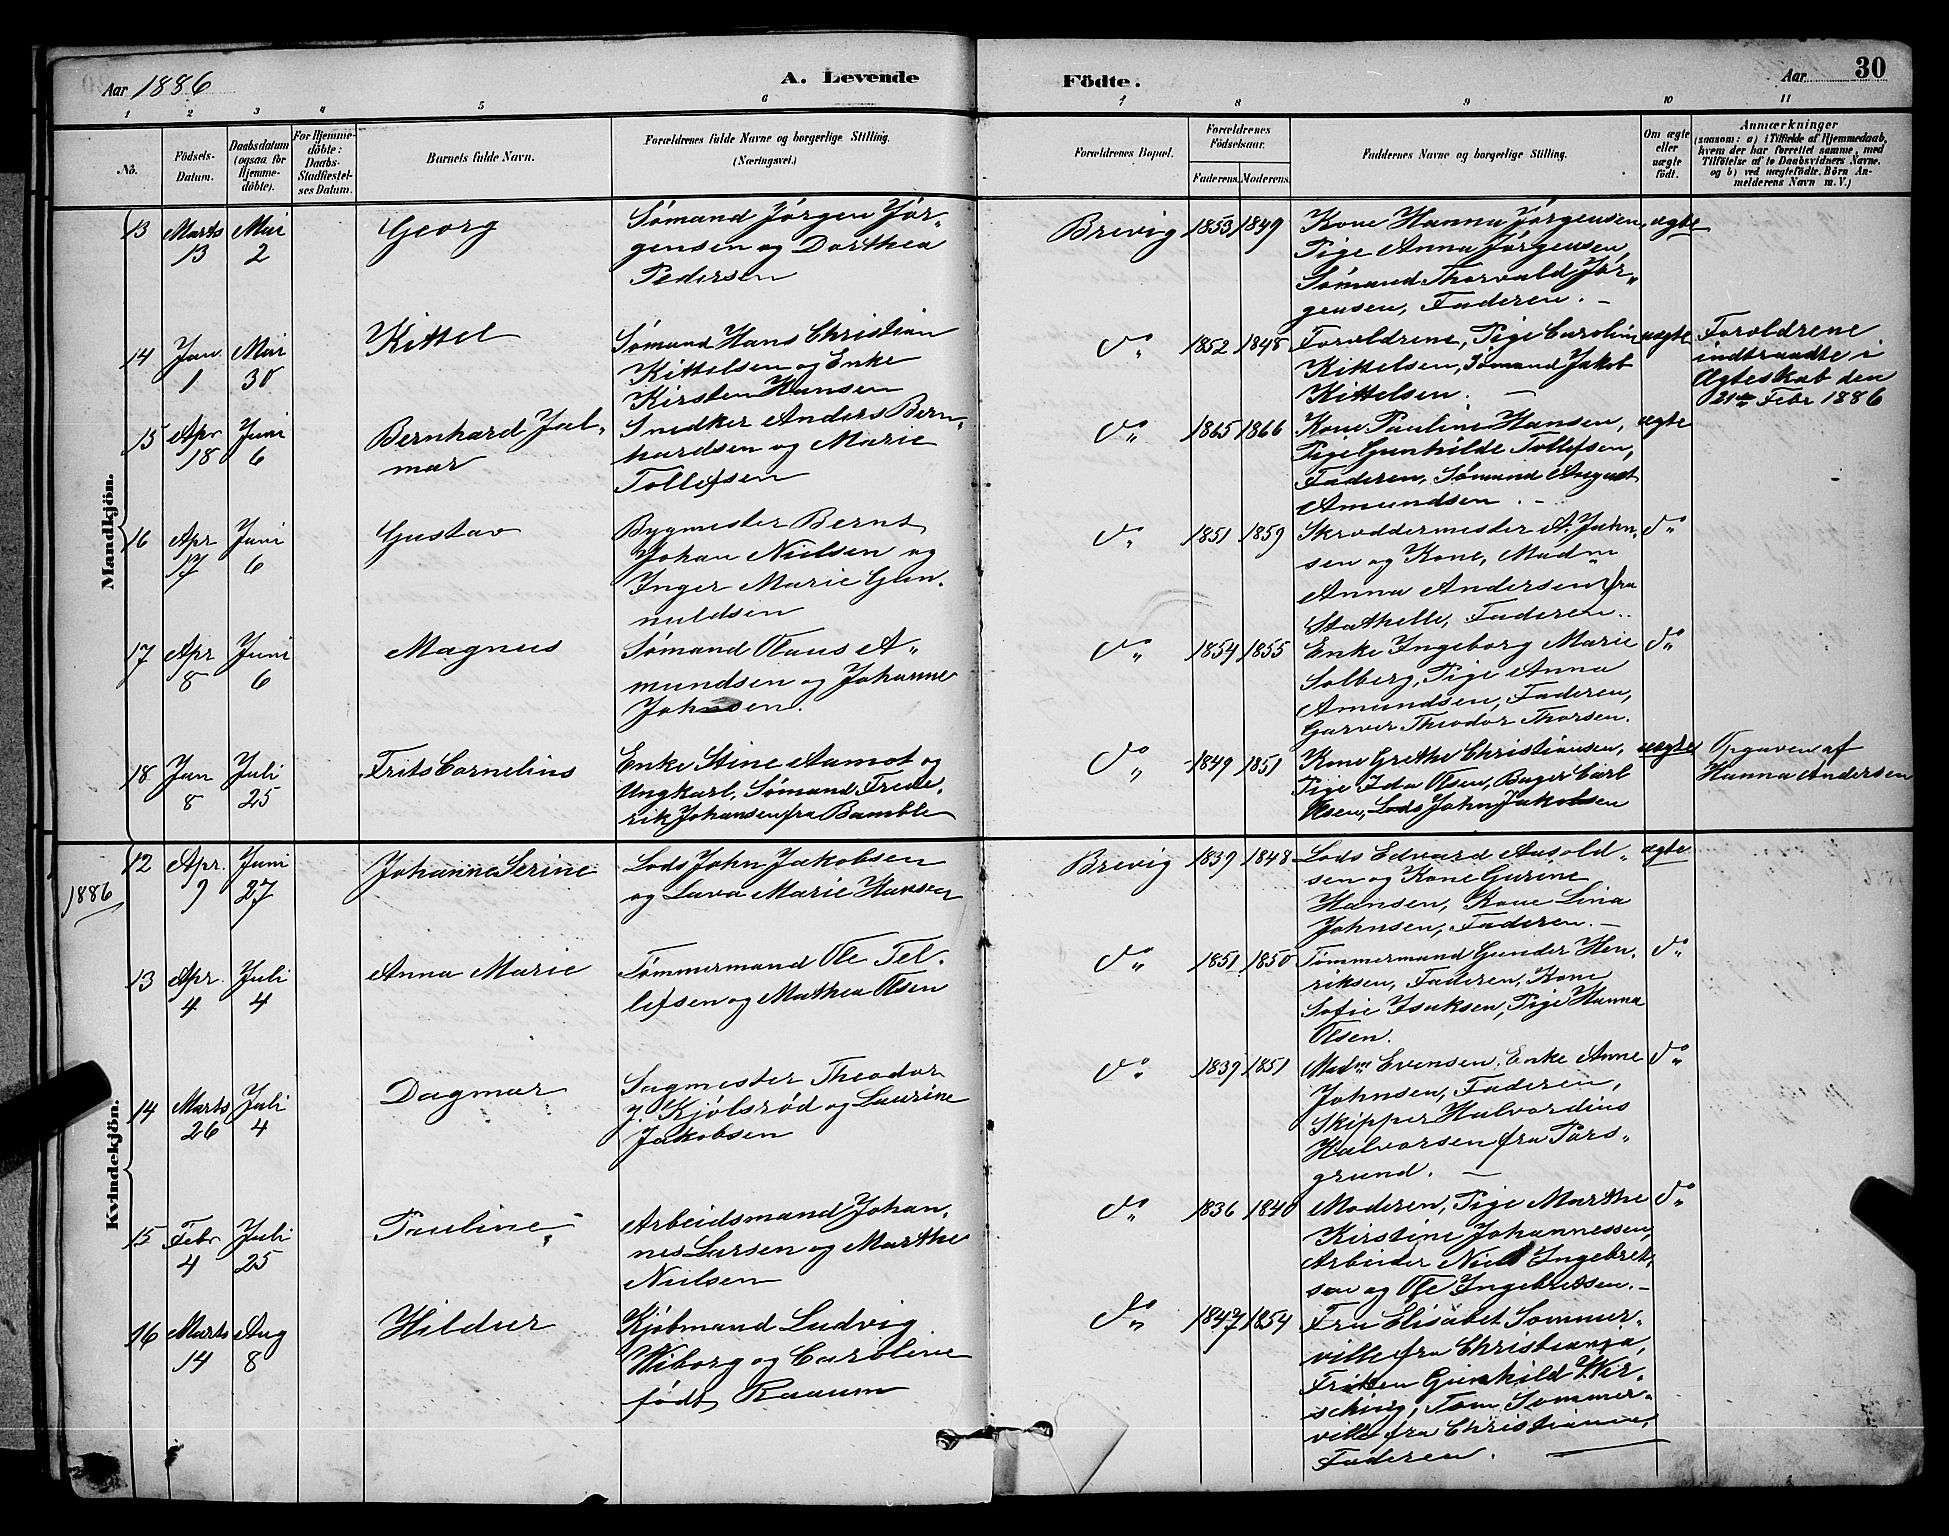 Aar 1886
A. Levende
Födte.
Aar
30
1 2 3 4 5 6 7 8 9 10 11
No.
Födsels-Datum.
Daabsdatum (ogsaa for Hjemme-döbte).
For Hjemme-döbte: Daabs-Stadfæstel-ses Datum.
Barnets fulde Navn.
Forældrenes fulde Navne og borgerlige Stilling. (Næringsvei.)
Forældrenes Bopæl.
Forældrenes Födselsaar.
Faderens. Moderens.
Faddernes Navne og borgerlige Stilling.
Om ægte eller uægte födt.
Anmærkninger
(saasom: a) i Tilfælde af Hjemmedaab, hvem der har forrettet samme, med Tilföielse af to Daabsvidners Navne. og b) ved uægtefödte Börn An-melderens Navn m. V.)
Mandkjön.
13 Marts 13 Mai 2 Georg
Sømand Jørgen Jør-
gensen og Dorthea
Pedersen
Brevig 1853 1849
Kone Hanna Jørgensen,
Pige Anna Jørgensen,
Sømand Thorvald Jør-
gensen, Faderen. -
ægte
14 Jan. 1 Mai 30 Kittel
Sømand Hans Christian
Kittelsen og Enke
Kirsten Hansen
Do 1852 1848
Forældrene, Pige Caroline
Kittelsen, Sømand Jakob
Kittelsen. -
uægte
Forældrene
indtraadte i
Ægteskab den
21de Febr 1886
15 Apr 18 Juni 6 Bernhard Jal-
mar
Snedker Anders Bern-
hardsen og Marie
Tollefsen
Do 1865 1866
Kone Pauline Hansen,
Pige Gunhilde Tollefsen,
Faderen, Sømand August
Amundsen. -
ægte
16 Apr 17 Juni 6 Gustav
Bygmester Bernt
Johan Nielsen og
Inger Marie Gun-
nuldsen
Do 1851 1859
Skræddermester A. Jahn-
sen og Kone, Madm
Anna Andersen fra
Stathelle, Faderen..
Do
17 Apr 8 Juni 6 Magnus
Sømand Olaus A-
mundsen og Johanne
Johnsen.
Do 1854 1855
Enke Ingeborg Marie
Solberg, Pige Anna
Amundsen, Faderen,
Garver Theodor Thorsen.
Do
18 Jan 8 Juli 25 Frits Cornelius
Enke Stine Aamot og
Ungkarl, Sømand Frede-
rik Johansen fra Bamble
Do 1849 1851
Kone Grethe Christiansen,
Pige Ida Olsen, Bager Carl
Olsen, Lods John Jakobsen
uægte
Opgaven af
Hanna Andersen
Kvindekjön.
1886
12 Apr. 9 Juni 27 Johanne Serine
Lods John Jakobsen
og Lava Marie Hansen
Brevig 1839 1848
Lods Edvard Aasold-
sen og Kone Gurine
Hansen, Kone Lina
Johnsen, Faderen. -
ægte
13 Apr. 4 Juli 4 Anna Marie
Tømmermand Ole Tel-
lefsen og Mathea Olsen
Do 1851 1850
Tømmermand Gunder Hen-
riksen, Faderen, Kone
Sofie Isaksen, Pige Hanna
Olsen.
Do
14 Marts 26 Juli 4 Dagmar
Sagmester Theodor
J. Kjølsrød og Laurine
Jakobsen
Do 1839 1851
Madm Evensen, Enke Anne
Johnsen, Faderen,
Skipper Halvordius
Halvorsen fra Pors-
grund. -
Do
15 Febr 4 Juli 25 Pauline
Arbeidsmand Johan-
nes Larsen og Marthe
Nielsen
Do 1836 1840
Moderen, Pige Marthe
Kirstine Johannessen,
Arbeider Niels Ingebret-
sen og Ole Ingebretsen. -
Do
16 Marts 14 Aug 8 Hildur
Kjøbmand Ludvig
Wiborg og Caroline
født Raaum
Do 1847 1854
Fru Elisabet Sommer-
ville fra Christiania,
Frøken Gunhild Wir-
sching, Tom Sommer-
ville fra Christiania,
Faderen.